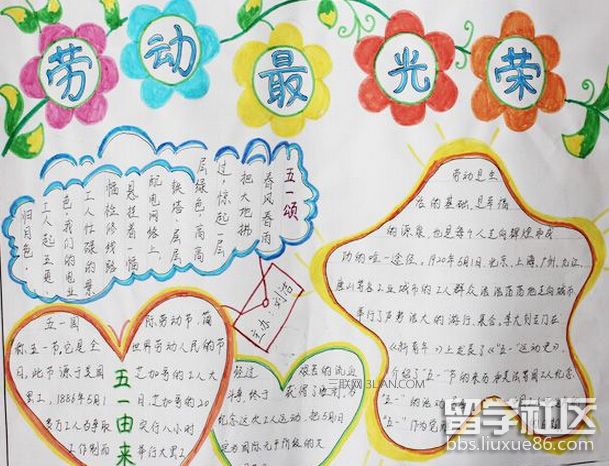 劳动最光荣
五一颂
春风春雨
把大地拂
过,惊起一层
层绿色,高高
铁塔,层层
配电网络上,
悬挂着一幅
幅检修线路
工人忙碌的景
色,我们的电业
工人起五更,
归日色
主办:刘浩
劳动是生
存的基础,是幸福
的源泉,也是每个人走向辉煌和成
功的唯一途径。1920年5月1日,北京、上海、广州、九江、
唐山等各工业城市的工人群众浩浩荡荡地走向城市
举行了声势浩大的游行、集会。李大钊专门在
《新青年》上发表了《"五一"运动史》,
介绍了"五一"节的来历和美法等国工人纪念
"五一"的活动
"五一"作为
五一由来
五一国际劳动节,简
称五一节,它是全世界劳动人民的节
日。此节源于美国芝加哥的工人大
罢工,1886年5月1芝加哥的20
多万工人为争取实行八小时
工作制而举行大罢工
经过艰苦的流血
斗争,终于获得了胜利,为
纪念这次工人运动,把5月1日
定为国际无产阶级的
三联网3LIAN.COM
留学社区
bbs.liuxue86.com